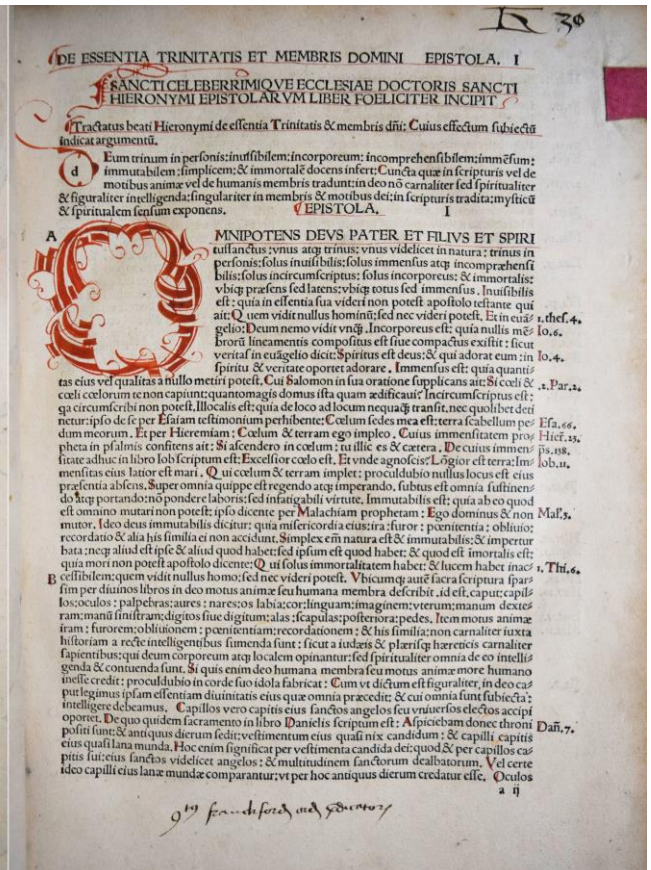 30
DE ESSENTIA TRINITATIS ET MEMBRIS DOMINI EPISTOLA. I
SANCTI CELEBERRIMIQVE ECCLESIAE DOCTORIS SANCTI
HIERONYMI EPISTOLARVM LIBER FOELICITER INCIPIT
Tractatus beati Hieronymi de essentia Trinitatis & membris dñi: Cuius effectum subiectũ
indicat argumentũ.
d Eum trinum in personis: inuisibilem: incorporeum: incomprehensibilem: immẽsum:
immutabilem: simplicem: & immortalẽ docens infert: Cuncta quæ in scripturis vel de
motibus animæ vel de humanis membris tradunt: in deo nõ carnaliter sed spiritualiter
& figuraliter intelligenda: singulariter in membris & motibus dei: in scripturis tradita: mysticũ
& spiritualem sensum exponens. EPISTOLA. I
A MNIPOTENS DEVS PATER ET FILIVS ET SPIRI
tussanctus: vnus atq; trinus: vnus videlicet in natura: trinus in
personis: solus inuisibilis: solus immensus atq; incompræhensi
bilis: solus incircumscriptus: solus incorporeus: & immortalis:
vbiq; præsens sed latens: vbiq; totus sed immensus. Inuisibilis
est: quia in essentia sua videri non potest apostolo testante qui
ait: Quem vidit nullus hominũ: sed nec videri potest. Et in euã= 1. thes. 4.
gelio: Deum nemo vidit vnq̃. Incorporeus est: quia nullis mẽ= Io. 6.
brorũ lineamentis compositus est siue compactus existit: sicut
veritas in euãgelio dicit: Spiritus est deus: & qui adorat eum: in Io. 4.
spiritu & veritate oportet adorare. Immensus est: quia quanti=
tas eius vel qualitas a nullo metiri potest. Cui Salomon in sua oratione supplicans ait: Si cœli & .2. Par. 2.
cœli cœlorum te non capiunt: quantomagis domus ista quam ædificaui? Incircumscriptus est:
ga circumscribi non potest. Illocalis est: quia de loco ad locum nequaq̃ transit. nec quolibet deti
netur: ipso de se per Esaiam testimonium perhibente: Cœlum sedes mea est: terra scabellum pe= Esa. 66.
dum meorum. Et per Hieremiam: Cœlum & terram ego impleo. Cuius immensitatem pro= Hier. 23.
pheta in psalmis confitens ait: Si ascendero in cœlum: tu illic es & cætera. De cuius immen= ps. 138.
sitate adhuc in libro Iob scriptum est: Excelsior cœlo est. Et vnde agnoscis: Lõgior est terra: Im= Iob. 11.
mensitas eius latior est mari. Qui cœlum & terram implet: proculdubio nullus locus est eius
præsentia absens. Super omnia quippe est regendo atq; imperando. subtus est omnia sustinen=
do atq; portando: nõ pondere laboris: sed infatigabili virtute. Immutabilis est: quia ab eo quod
est omnino mutari non potest: ipso dicente per Malachiam prophetam: Ego dominus & non Mal. 3.
mutor. Ideo deus immutabilis dicitur: quia misericordia eius: ira: furor: pœnitentia: obliuio:
recordatio & alia his similia ei non accidunt. Simplex em̃ natura est & immutabilis: & impertur
bata: neq; aliud est ipse & aliud quod habet: sed ipsum est quod habet: & quod est imortalis est:
quia mori non potest apostolo dicente: Qui solus immortalitatem habet: & lucem habet inac= 1. Thi. 6.
B cessibilem: quem vidit nullus homo: sed nec videri potest. Vbicumq; autẽ sacra scriptura spar=
sim per diuinos libros in deo motus animæ seu humana membra describit. id est, caput: capil=
los: oculos: palpebras: aures: nares: os labia: cor: linguam: imaginem: vterum: manum dexte=
ram: manũ sinistram: digitos siue digitum: alas: scapulas: posteriora: pedes. Item motus animæ
iram: furorem: obliuionem: pœnitentiam: recordationem: & his similia: non carnaliter iuxta
historiam a recte intelligentibus sumenda sunt: sicut a iudæis & plærisq; hæreticis carnaliter
sapientibus: qui deum corporeum atq; localem opinantur: sed spiritualiter omnia de eo intelli=
genda & contuenda sunt. Si quis enim deo humana membra seu motus animæ more humano
inesse credit: proculdubio in corde suo idola fabricat: Cum vt dictum est figuraliter, in deo ca=
put legimus ipsam essentiam diuinitatis eius quæ omnia præcedit: & cui omnia sunt subiecta:
intelligere debeamus. Capillos vero capitis eius sanctos angelos seu vniuersos electos accipi
oportet. De quo quidem sacramento in libro Danielis scriptum est: Aspiciebam donec throni Dañ. 7.
positi sunt: & antiquus dierum sedit: vestimentum eius quasi nix candidum: & capilli capitis
eius quasi lana munda. Hoc enim significat per vestimenta candida dei: quod & per capillos ca=
pitis sui: eius sanctos videlicet angelos: & multitudinem sanctorum dealbatorum. Vel certe
ideo capilli eius lanæ mundæ comparantur: vt per hoc antiquus dierum credatur esse. Oculos
a ij